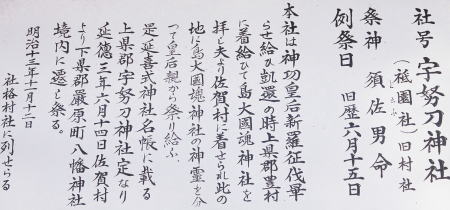 社号 宇努刀神社
(祗園社) 旧村社
祭神 須佐男命
例祭日 旧歴六月十五日
本社は神功皇后新羅征伐畢
らせ給ひ凱還の時上県郡豊村
に着給ひて島大國魂神社を
拝し夫より佐賀村に着せられ此の
地に島大國魂神社の神霊を分
つて皇后親から祭り給ふ
是延喜式神社名帳に載る
上県郡宇努刀神社定なり
延德三年六月十四日佐賀村
より下県郡厳原町八幡神社
境内に遷し祭る。
明治十三年十月十二日
社格村社に列せらる